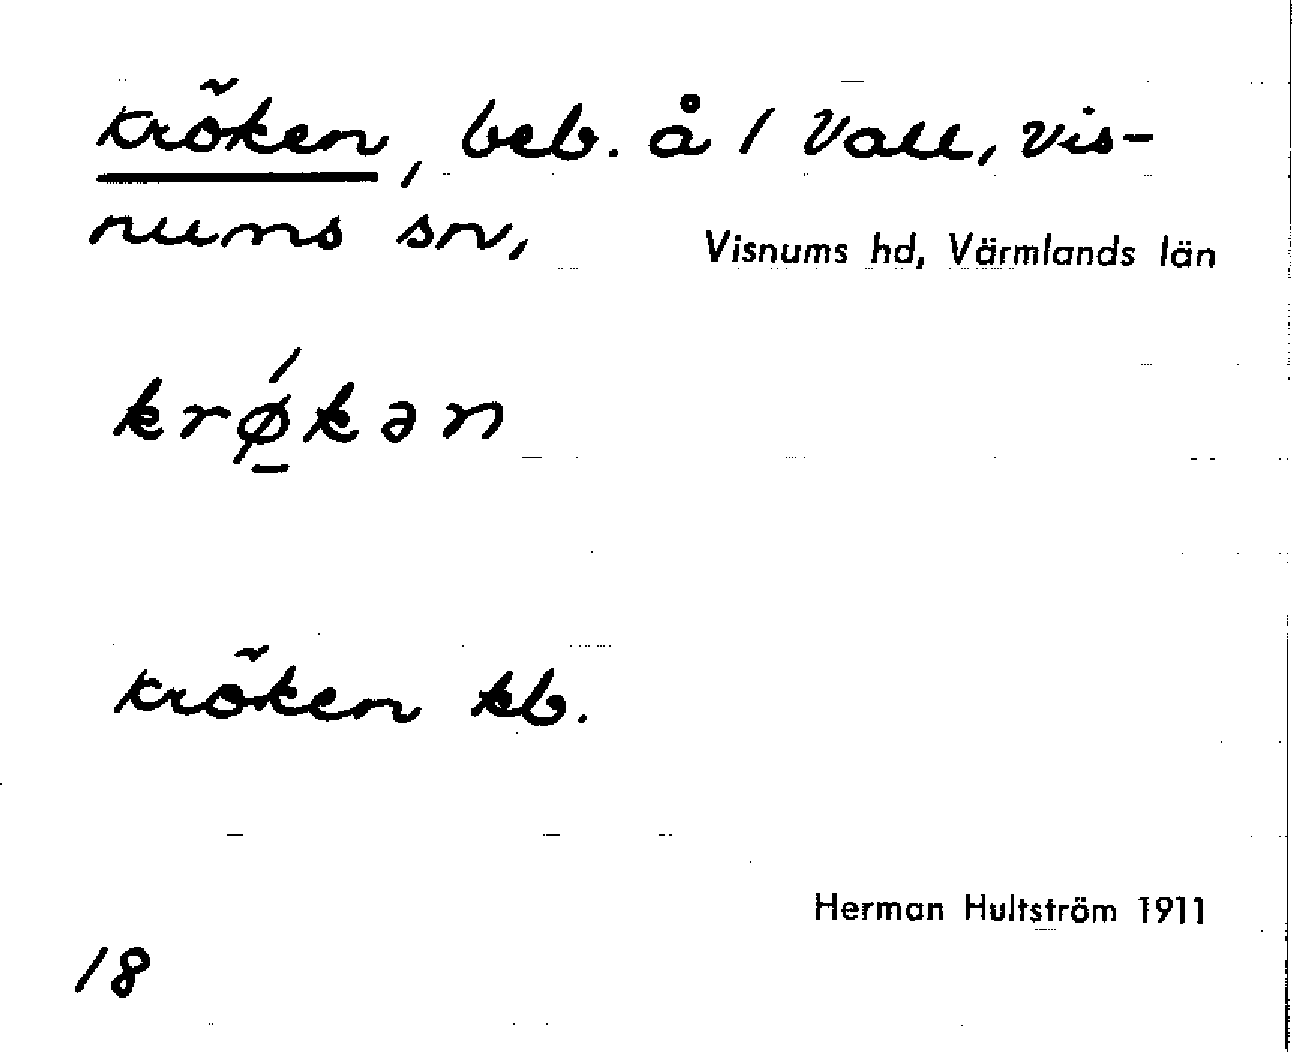 Kröken, beb. å 1 Vall, Vis-
nums sn,
Visnums hd, Värmlands län
krǿ̱kən
Kröken kb.
Herman Hultström 1911
18